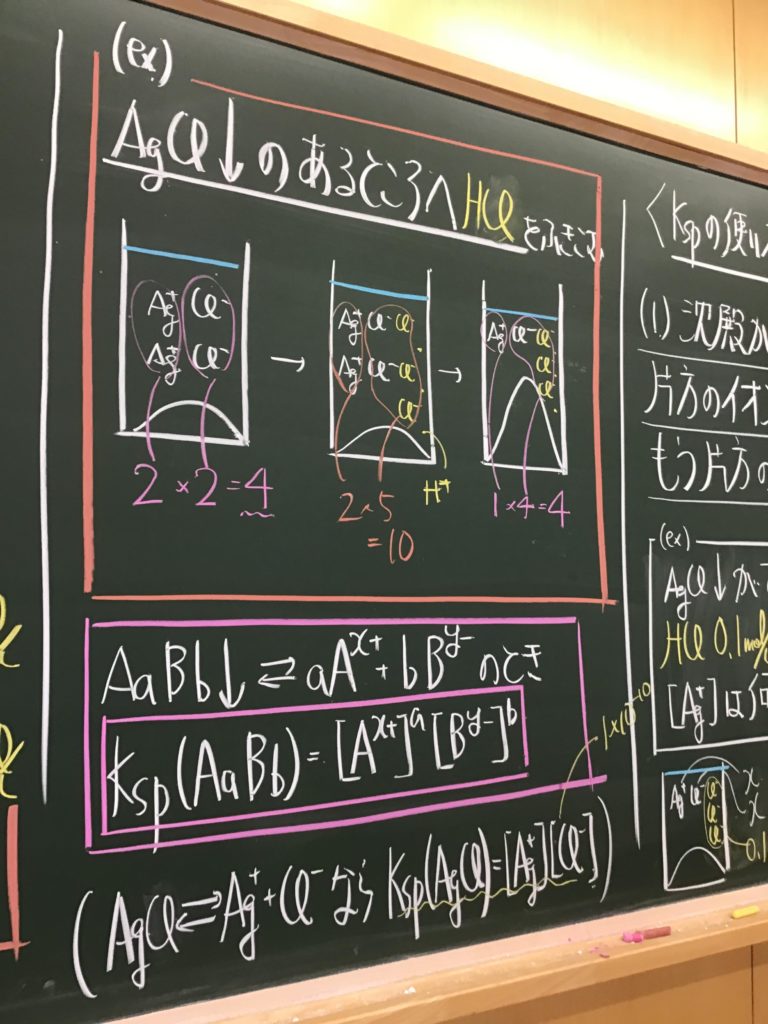 (ex)
AgCl↓のあるところへHClをふきこむ
Ag⁺ Cl⁻
Ag⁺ Cl⁻
2×2=4
→
Ag⁺ Cl⁻ Cl⁻
Ag⁺ Cl⁻ Cl⁻
Cl⁻
H⁺
2×5
=10
→
Ag⁺ Cl⁻ Cl⁻
Cl⁻
Cl⁻
1×4=4
AaBb↓⇄aAˣ⁺+bBʸ⁻のとき
Ksp(AaBb)=[Aˣ⁺]ᵃ[Bʸ⁻]ᵇ
1×10⁻¹⁰
(AgCl⇄Ag⁺+Cl⁻なら Ksp(AgCl)=[Ag⁺][Cl⁻])
〈Kspの使い
(1) 沈殿が
片方のイオン
もう片方の
(ex)
AgCl↓が
HCl 0.1mol/
[Ag⁺]は何
Ag⁺ Cl⁻ Cl⁻
Cl⁻
Cl⁻
x
x
0.1